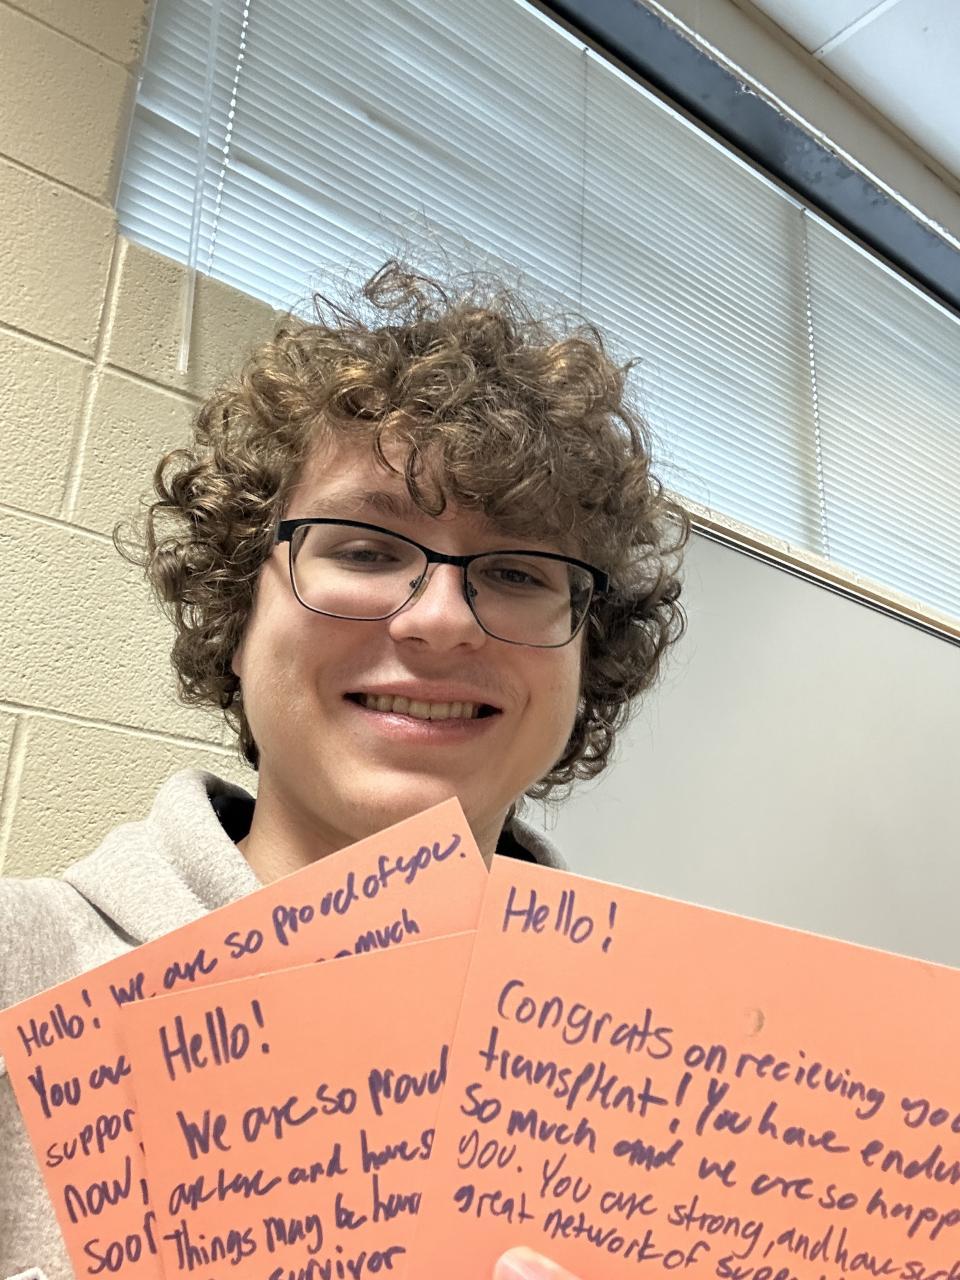 Hello! We are so proud of you.
You are so much
suppor
now,
soo
Hello!
We are so proud
are and have s
Things may be har
survivor
Hello!
Congrats on recieving yo
transplant! You have endur
so much and we are so happ
you. You are strong, and have suc
great network of supp